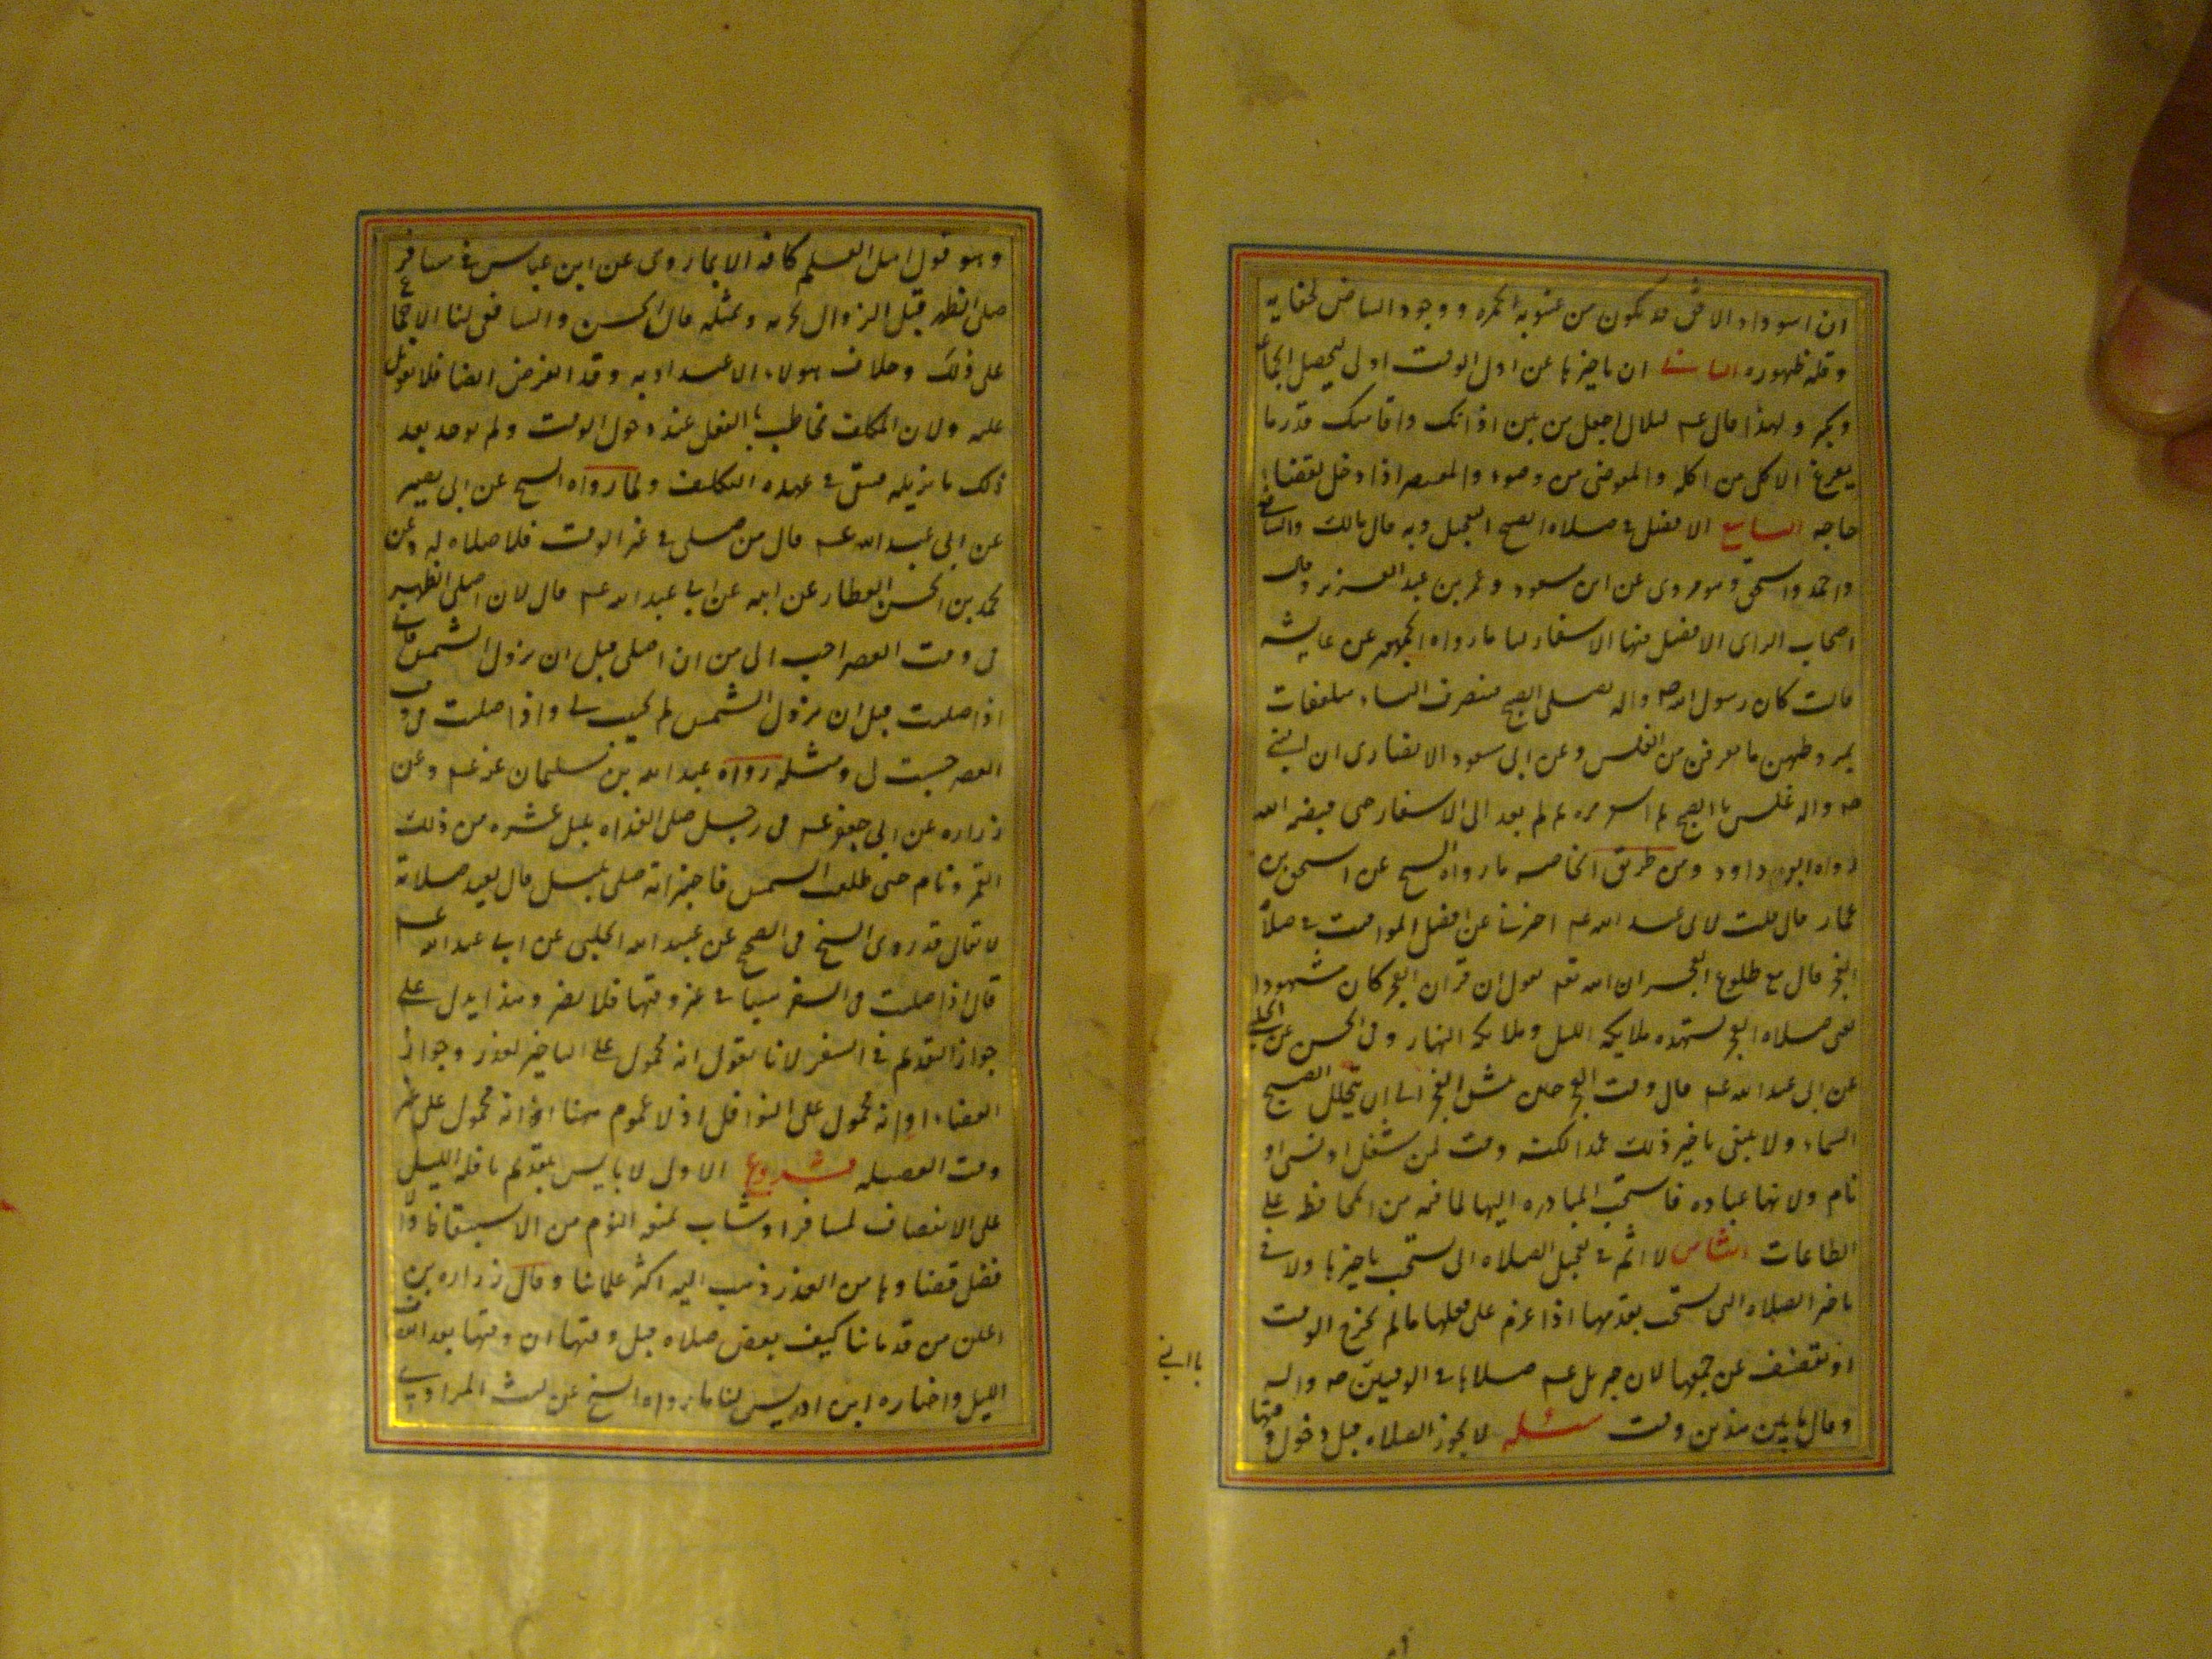 ان اسوداد الافق قد يكون من عقوبة الحمرة ووجود البياض لخفايه
وقلة ظهوره الثاني ان تاخيرها عن اول الوقت اولى ليحصل الجماعة
ويكبر ولهذا قال عم لبلال اجعل من بين اذانك واقامتك قدر ما
يفرغ الاكل من اكله والمتوضى من وضوء والمعتصر اذا دخل لقضاء
حاجه السابع الافضل في صلاة الصبح التعجيل وبه قال مالك والشافعي
واحمد واسحق وهو مروى عن ابن مسعود وعمر بن عبد العزيز وقال
اصحاب الراى الافضل فيها الاسفار لنا ما رواه الجمهور عن عايشه
قالت كان رسول الله صه واله يصلى الصبح فينصرف النساء متلفعات
بمروطهن ما يعرفن من الغلس وعن ابى مسعود الانصارى ان النبي
صه واله غلس بالصبح ثم اسفر مره ثم لم يعد الى الاسفار حتى قبضه الله
رواه ابو داود ومن طريق الخاصه ما رواه الشيخ عن اسحق بن
عمار قال قلت لابى عبد الله عم اخبرني عن افضل المواقيت في صلاة
الفجر قال مع طلوع الفجر ان الله تعه يقول ان قران الفجر كان مشهودا
يعنى صلاه الفجر تشهده ملايكة الليل وملايكة النهار وفى الحسن عن الحلبي
عن ابى عبد الله عم قال وقت الفجر حين ينشق الفجر الى ان يتجلل الصبح
السماء ولا ينبغى تاخير ذلك عمدا لكنه وقت لمن شغل او نسى او
نام ولانها عباده فاستحب المبادره اليها لما فيه من المحافظه على
الطاعات الثامن لا اثم في تعجيل الصلاه التى يستحب تاخيرها ولا في
تاخير الصلاه التى يستحب تقديمها اذا عزم على فعلها ما لم يخرج الوقت
او يتضيف عن جميعها لان جبريل عم صلاها في الوقتين صه واله
وقال ما بين هذين وقت مسئله لا يجوز الصلاه قبل دخول وقتها
وهو قول اهل العلم كافه الا بما روى عن ابن عباس في مسافر
صلى الظهر قبل الزوال يجزيه وبمثله قال الحسن والشافعى لنا الاجماع
على ذلك وخلاف هولاء لا اعتداد به وقد انقرض ايضا فلا تعويل
عليه ولان المكلف مخاطب بالفعل عند دخول الوقت ولم يوجد بعد
ذلك ما يزيله فيبقى في عهده التكليف ولما رواه الشيخ عن ابى بصير
عن ابى عبد الله عم قال من صلى في غير الوقت فلا صلاه له وعن
محمد بن الحسن العطار عن ابيه عن ابي عبد الله عم قال لان اصلى الظهر
فى وقت العصر احب الى من ان اصلى قبل ان يزول الشمس فاني
اذا صليت قبل ان يزول الشمس لم يحسب لي واذا صليت فى وقت
العصر حسبت لى ومثله رواه عبد الله بن سليمان عنه عم وعن
زراره عن ابى جعفر عم فى رجل صلى الغداه بليل غره من ذلك
القمر ونام حتى طلعت الشمس فاخبر انه صلى بليل قال يعيد صلاته
لا يقال قد روى الشيخ فى الصحيح عن عبيد الله الحلبى عن ابي عبد الله عم
قال اذا صليت فى السفر شيئا في غير وقتها فلا يضر وهذا يدل على
جواز التقديم في السفر لانا نقول انه محمول على التاخير لعذر وجواز
القضاء او انه محمول على النوافل اذ لا عموم ههنا او انه محمول على غير
وقت الفضيله فروع الاول لا باس بتقديم نافله الليل
على الانتصاف لمسافر او شاب يمنعه النوم من الاستيقاظ وان
فضل قضاوها من العذر ذهب اليه اكثر علمائنا وقال زراره بن
اعين من قدمائنا كيف يقضى صلاه قبل وقتها ان وقتها بعد انتصاف
الليل واختاره ابن ادريس لنا ما رواه الشيخ عن ليث المرادي
باابي